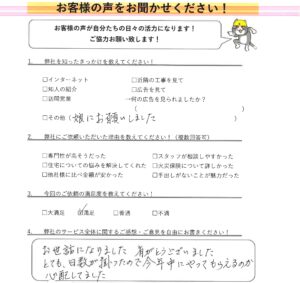 お客様の声をお聞かせください！
お客様の声が自分たちの日々の活力になります！
ご協力お願い致します！
1. 弊社を知ったきっかけを教えてください！
□インターネット □近隣の工事を見て
□知人の紹介 □広告を見て
□訪問営業 →何の広告を見られましたか？
( )
□その他（ 娘にお願いしました ）
2. 弊社にご依頼いただいた理由を教えてください！（複数回答可）
□専門性が高そうだった □スタッフが相談しやすかった
□住宅についての悩みを解決してくれた □火災保険について詳しかった
□他社様に比べ金額が安かった □手出しがないことが魅力だった
3. 今回のご依頼の満足度を教えてください！
□大満足 ☑満足 □普通 □不満
4. 弊社のサービス全体に関するご感想・ご意見を自由にお書きください！
お世話になりました 有がとうございました
とても、日数が掛ったので今年中にやってもらえるのか
心配してました